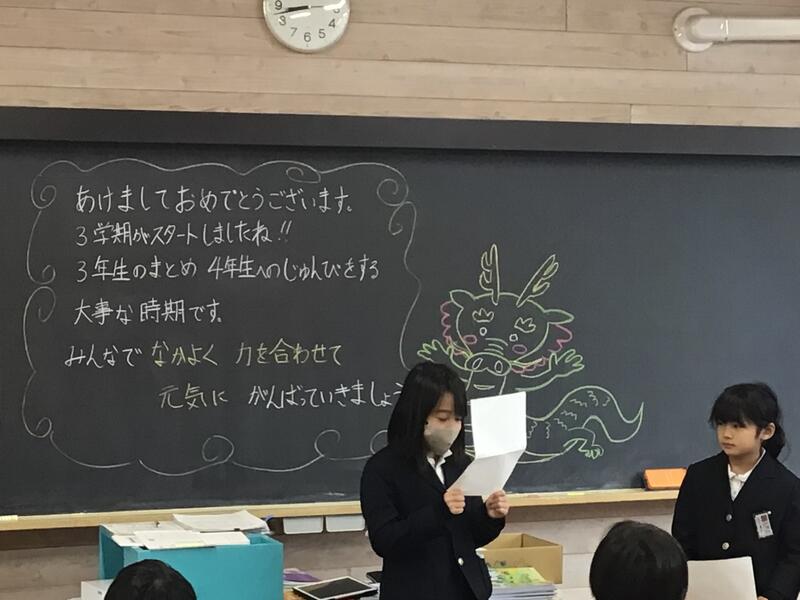 9
8
7
6
5
あけましておめでとうございます。
3学期がスタートしましたね!!
3年生のまとめ 4年生へのじゅんびをする
大事な時期です。
みんなで なかよく 力を合わせて
元気に がんばっていきましょう